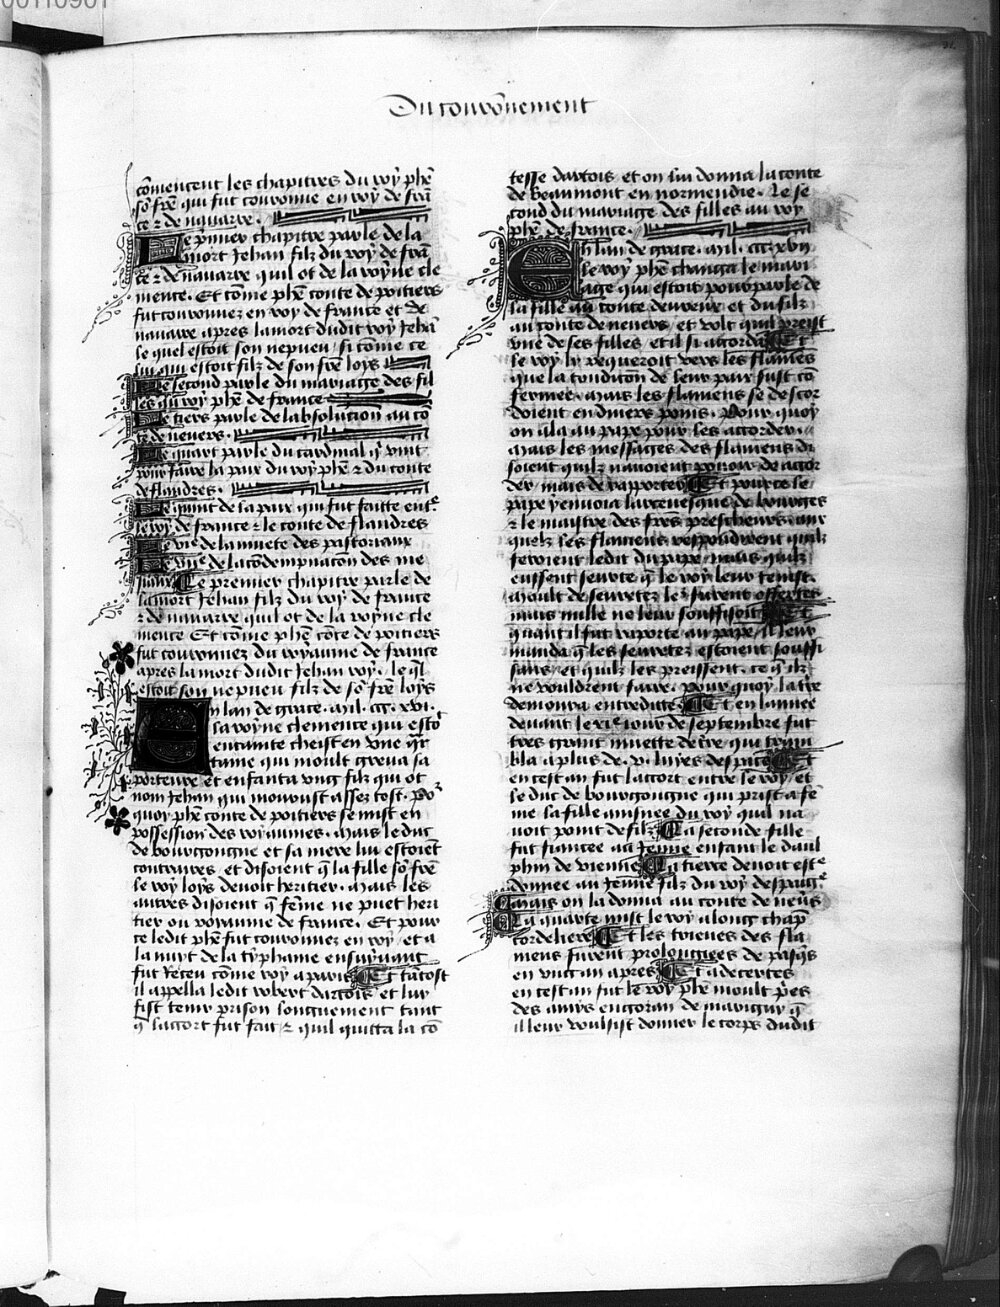 00110901
Du couronnement
co͞mencent les chapitres du roy phẽ
so͞ frẽ qui fut couronne en roy de fra͞
ce ⁊ de nauarre.
Le p̃mier chapitre parle de la
mort Jehan filz du roy de fra͞
ce ⁊ de nauarre quil ot de la royne cle
mence. Et co͞me phẽ conte de poitiers
fut couronnez en roy de france et de
nauarre apres la mort dudit roy Jeha͞
le quel estoit son nepueu / si co͞me ce
lui qui estoit filz de son frẽ loys
Le second parle du mariage des fil
les au roy phẽ de france
Le tiers parle de labsolucion au co͞
te de neuers.
Le quart parle du cardinal q̃ vint
pour faire la paix du roy phẽ ⁊ du conte
de flandres.
Le quint de la paix qui fut faitte ent͛
le roy de france ⁊ le conte de flandres
Le vie de la muete des pastoraux
Le viie de la co͞dempnacion des me
seaux Le premier chapitre parle de
la mort Jehan filz du roy de france
⁊ de nauarre quil ot de la royne cle
mence Et co͞me phẽ co͞te de poitiers
fut couronnez du royaume de france
apres la mort dudit Jehan roy. le q̃l
estoit son nepueu filz de so͞ frẽ loys
En lan de grace. mil. ccc. xvi.
la royne clemence qui esto͛
encainte cheist en vne q̃r
taine qui moult greua sa
porteure et enfanta vng filz qui ot
nom Jehan qui mourust assez tost. Po͛
quoy phẽ conte de poitiers se mist en
possession des royaumes. mais le duc
de bourgongne et sa mere lui estoiet
contraires / et disoient q̃ la fille so͞ frẽ
le roy loys deuoit heritier. mais les
autres disoient q̃ fe͞me ne puet heri
tier ou royaume de france. Et pour
ce ledit phẽ fut couronnez en roy / et a
la nuyt de la typhame ensuyuant
fut receu co͞me roy a paris Et ta͞tost
il appella ledit robert dartois et luy
fist tenir prison longuement tant
q̃ lacort fut fait ⁊ quil quitta la co͞
tesse dartois et on lui donna la conte
de beaumont en normendie. Le se
cond du mariage des filles au roy
phẽ de france.
En lan de grace. mil. ccc. xvii
le roy phẽ changa le mari
age qui estoit pourparle de
la fille au conte deureux et du filz
au conte de neuers / et volt quil preist
vne de ses filles / et il si accorda Et
le roy ly requeroit vers les flames
que la condicion de leur paix fust co͞
fermee. mais les flamens se descor
doient en diuers poins. Pour quoy
on ala au pape pour les accorder.
mais les messages des flamens di
soient quilz nauoient pouoir de accor
der / mais de raporter Et pource le
pape y enuoia larceuesque de bourges
⁊ le maistre des fr̃es prescheurs. aux
quelz les flamens respondirent quilz
feroient le dit du pape / mais quilz
eussent seurte q̃ le roy leur tenist.
moult de seurtez le͛ furent offertes
mais nulle ne leur souffisoit Et
quant il fut raporte au pape / il leur
manda q̃ les seuretez estoient souffi
sans / et quilz les preissent. ce q̃ ilz
ne vouldrent faire. pour quoy la tre
demoura entreduite Et en lannee
deuant le vie iour de septembre fut
tres grant muette de t̃re / qui
bla a plus de. v. liues despace Et
en cest an fut lacort entre le roy et
le duc de bourgongne qui prist a fe͞
me la fille ainsnee du roy qui na
uoit point de filz La seconde fille
fut fiancee au Jenne enfant le daul
phin de vienne La tierce deuoit est͛
donnee au Jenne filz du roy despag͛
mais on la donna au conte de neu͛s
La quarte mist le roy a long chap͞
cordeliere Et les trieues des fla
mens furent prolonguies de pasq̃s
en vng an apres Et adecertes
en cest an fut le roy phẽ moult p̃es
des amys engoran de marigny q̃
il leur voulsist donner le corps dudit